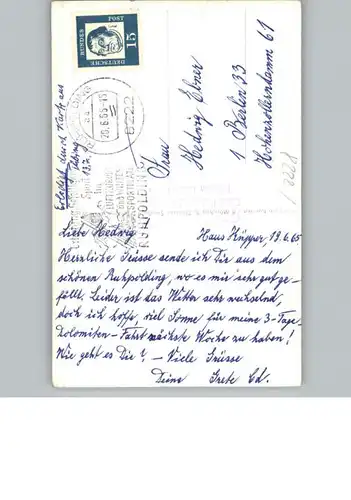 DEUTSCHE
BUNDES
POST
15
20.6.65-15
8222
RUHPOLDING
Erledigt durch Karte aus
13.7.
Frau
Hedwig Ebner
1 Berlin 33
Hohenzollerndamm 61
Haus Küpper 19.6.65
Liebe Hedwig
Herzliche Grüsse sende ich Dir aus dem
schönen Ruhpolding, wo es mir sehr gut ge-
fällt. Leider ist das Wetter sehr wechselnd,
doch ich hoffe, viel Sonne für meine 3-Tage-
Dolomiten-Fahrt nächste Woche zu haben!
Wie geht es Dir? - Viele Grüsse
Deine Grete Ed.